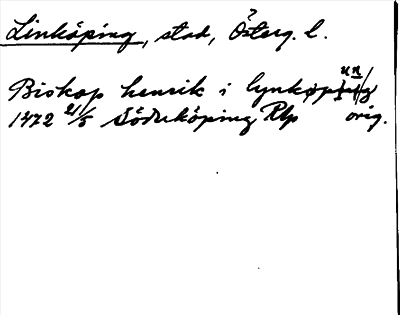 Linköping, stad, Österg. l.
Biskop henrik i lynkøpung
1472 21/5 Söderköping Rlp orig.